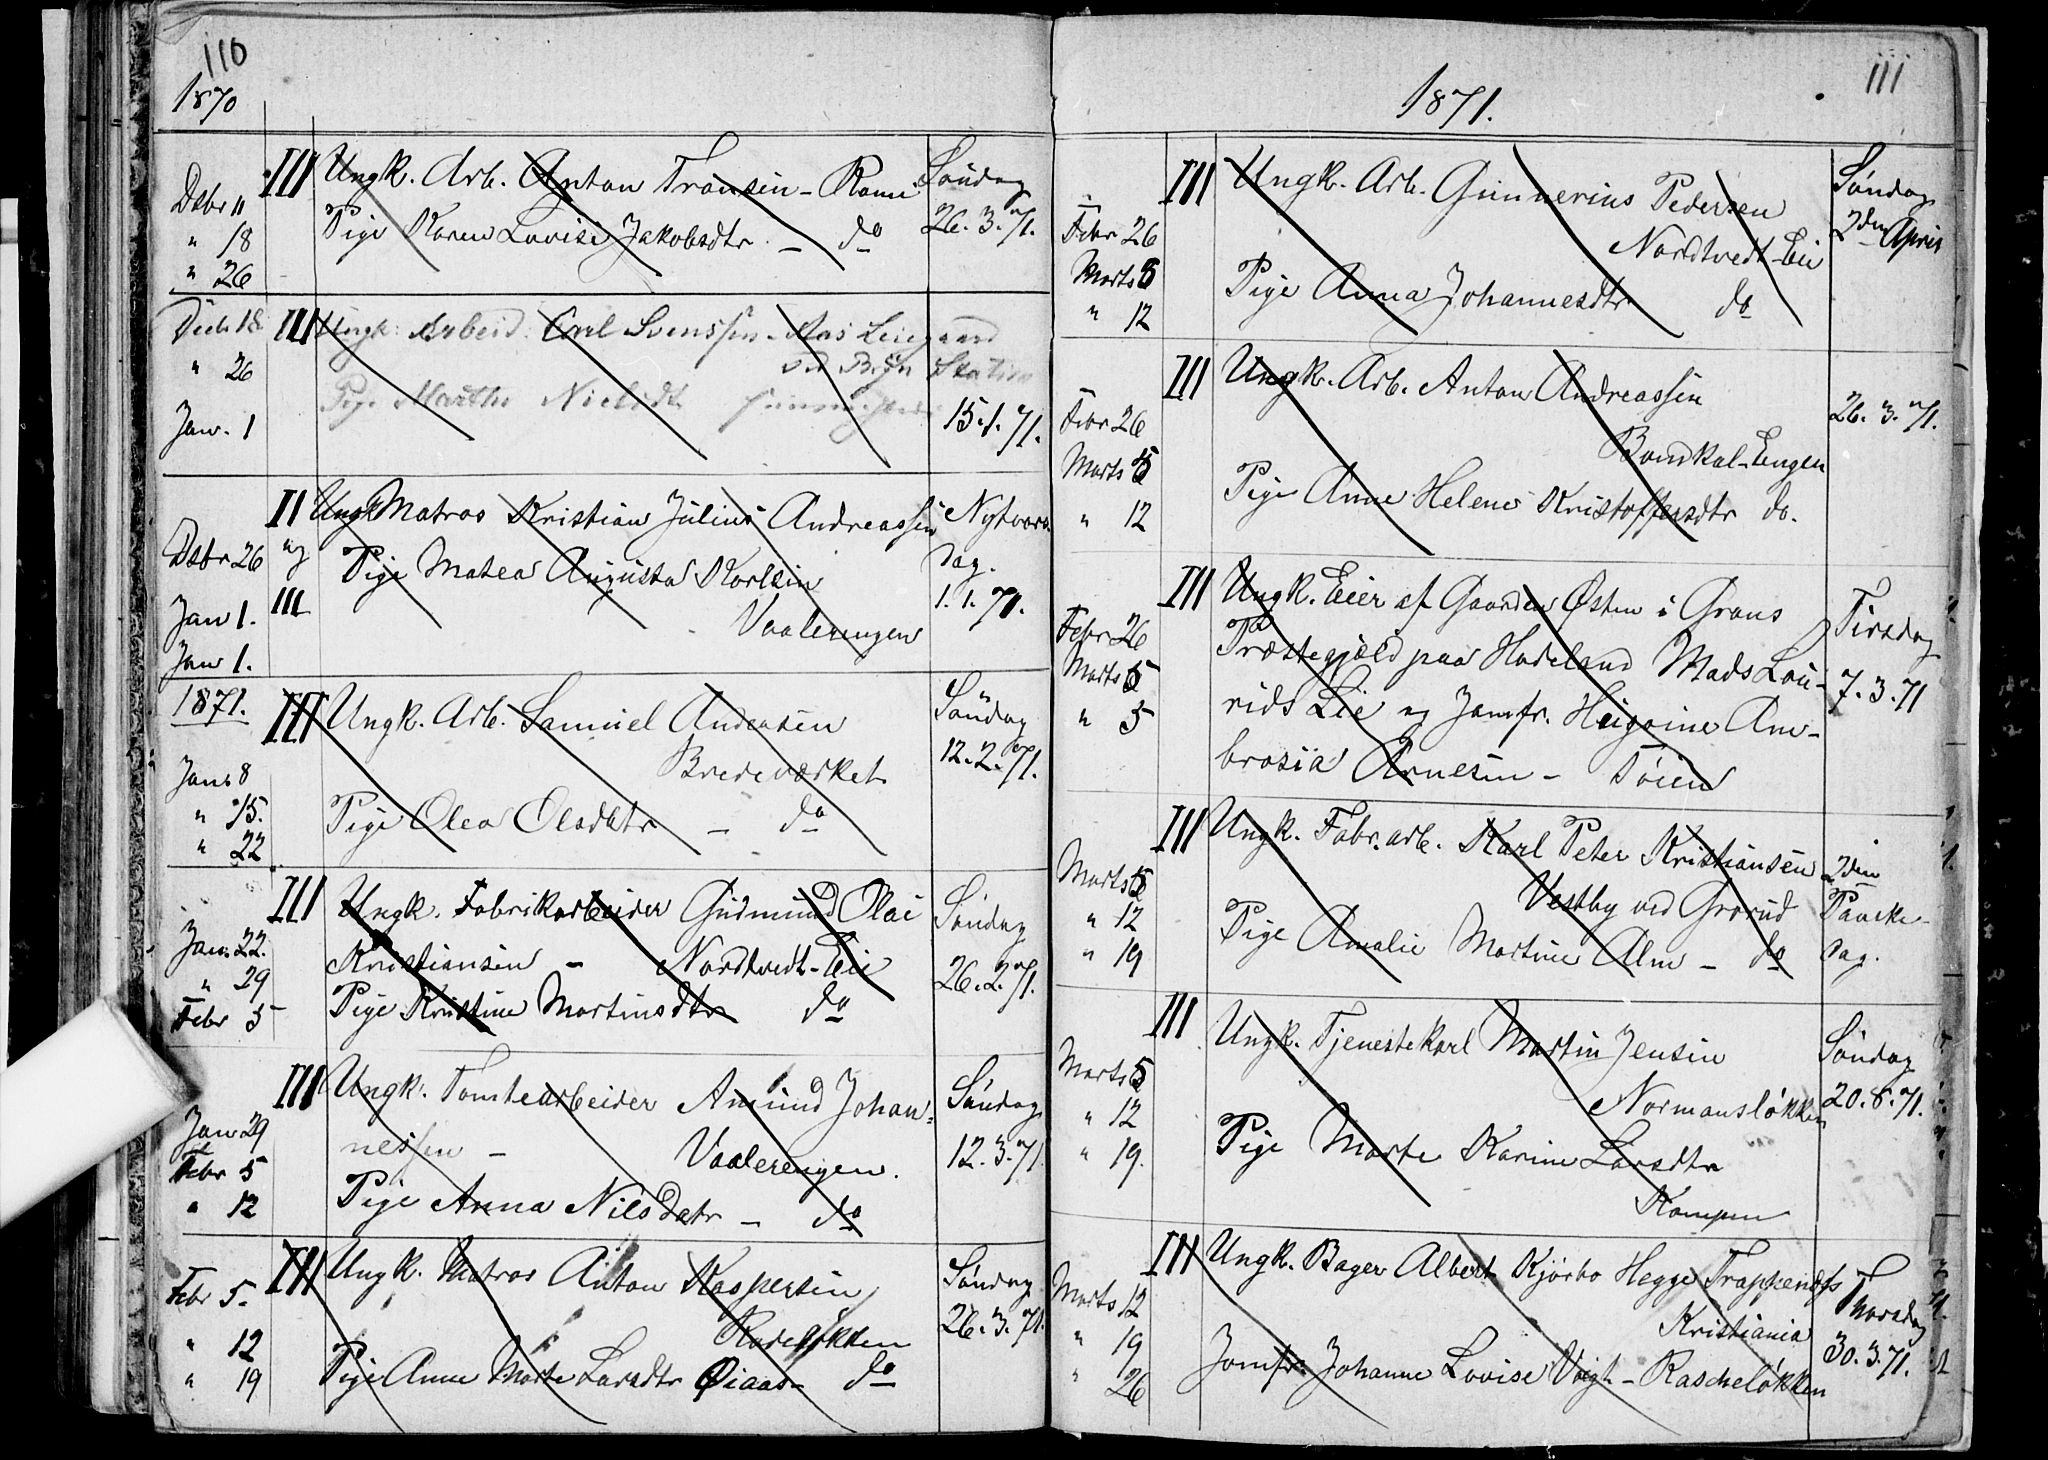 110
1870
Dsbr 11 III Ungk. Arb. Anton Fransen - Søndag
" 18 Pige Karen Lovise Jakobsdtr. - do 26.3.71.
" 26
Decb 18 III Ungk. Arbeid. Carl Svenssen - Aas Leiegaard
" 26 ved Bryn Station
Pige Marthe Nielsdt.
Jan. 1 15.1.71.
II Ungk Matros Kristian Julius Andreassen Nytaars
Dsbr 26 og Pige Matea Augusta Karlsen dag.
Jan 1. III 1.1.71.
Vaalerengen
Jan 1.
1871. III Ungk. Arb. Samuel Andersen Søndag
Bredeværket 12.2.71.
Jan. 8
" 15. Pige Olea Olsdatr - do
" 22
III Ungk. Fabrikarbeider Gudmund Olai Søndag
Jan. 22. Kristiansen - Nordtvedt-Eie 26.2.71.
" 29
Febr 5 Pige Kristine Martinsdtr do
III Ungk. Tomtearbeider Amund Johan- Søndag
Jan 29 nessen - Vaalerengen. 12.3.71
Febr 5
" 12 Pige Anna Nilsdatr - do
III Ungk. Matros Anton Kaspersen Søndag
Febr 5. Rodeløkken 26.3.71.
" 12
" 19 Pige Anne Marte Larsdtr Øiaas- do
111
1871.
III Ungk. Arb. Gunnerius Pedersen Søndag
Febr 26 Nordtvedt-Eie 2den April
Marts 5
" 12 Pige Anna Johannesdtr do
III Ungk. Arb. Anton Andreassen
Febr 26 26.3.71.
Marts 5 Bondkal-Engen
" 12 Pige Anne Helene Kristoffersdtr do.
III Ungk. Eier af Gaarden Østen i Grans Tirsdag
Febr 26 Præstegjeld paa Hadeland Mads Lau- 7.3.71
Marts 5
" 5 rids Lie og Jomfr. Heigine Am-
brosia Arnesen - Tøien
III Ungk. Fabr.arb. Karl Peter Kristiansen 2den
Marts 5 Vestby ved Grorud Paaske-
" 12 Pige Amalie Martine Alm - do dag.
" 19
III Ungk. Tjenestekarl Martin Jensen Søndag
Marts 5 Normansløkken 20.8.71.
" 12
" 19. Pige Marte Karine Larsdtr
Kampen
III Ungk. Bager Albert Kjørbo Hegge Trappendfs Thorsdag
Marts 12 Kristiania
" 19 30.3.71.
" 26 Jomfr. Johanne Lovise Voigt - Rascheløkken